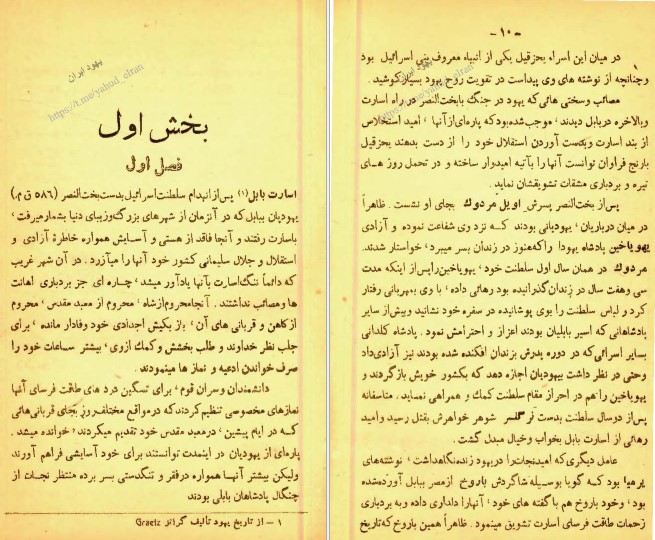 بخش اول
فصل اول
اسارت بابل (۱) پس از انهدام سلطنت اسرائیل بدست بخت‌النصر (۵۸۶ ق م.)
یهودیان ببابل که در آنزمان از شهرهای بزرگ وزیبای دنیا بشمار میرفت ،
باسارت رفتند و آنجا فاقد از هستی و آسایش همواره خاطرهٔ آزادی و
استقلال و جلال سلیمانی کشور خود آنها را میآزرد . در آن شهر غریب
که دائماً ننگ اسارت بآنها یادآور میشد ، چاره ای جز بردباری اهانت ها
ومصائب نداشتند . آنجا محروم از شاه ، محروم از معبد مقدس ، محروم
از کاهن و قربانی های آن ، باز بکیش اجدادی خود وفادار مانده ، برای
جلب نظر خداوند و طلب بخشش و کمک ازوی ، بیشتر ساعات خود را
صرف خواندن ادعیه و نماز ها مینمودند .
دانشمندان وسران قوم ، برای تسکین درد های طاقت فرسای آنها
نمازهای مخصوصی تنظیم کردند که در مواقع مختلف روز بجای قربانی‌هائی
کـه در ایام پیشین ، درمعبد مقدس خود تقدیم میکردند ؛ خوانده میشد .
پاره‌ای از یهودیان در اینمدت توانستند برای خود آسایشی فراهم آورند
ولیکن بیشتر آنهـا همواره درفقر و تنگدستی بسر برده منتظر نجات از
چنگال پادشاهان بابلی بودند
۱ – از تاریخ یهود تألیف گراتز Graetz
یهود ایران
https://t.me/yahud_eiran
-۱۰-
در میان این اسراء بحزقیل یکی از انبیاء معروف بنی اسرائیل بود
وچنانچه از نوشته های وی پیداست در تقویت روح یهود بسیار کوشید .
مصائب وسختی هائی‌که یهود در جنگ بابخت‌النصر در راه اسارت
وبالاخره دربابل دیدند ، موجب شده بود که پاره‌ای از آنها ، امید استخلاص
از بند اسارت وبدست آوردن استقلال خود را از دست بدهند بحزقیل
بارنج فراوان توانست آنها را بآتیه امیدوار ساخته و در تحمل روز هـای
تیره و بردباری مشقات تشویقشان نماید .
پس از بخت‌النصر پسرش اویل مردوک بجای او نشست . ظاهراً
در میان درباریان ، یهودیانی بودند کـه نزد وی شفاعت نموده و آزادی
یهویاخین پادشاه یهودا را که هنوز در زندان بسر میبرد ، خواستار شدند.
مردوک در همان سال اول سلطنت خود ، یهویاخین را پس از اینکه مدت
سی وهفت سال در زندان گذرانیده بود رهائی داده ، با وی بمهربانی رفتار
کرد و لباس سلطنت را بوی پوشانیده در سفره خود نشانید وبیش از سایر
پادشاهانی که اسیر بابلیان بودند اعزاز و احترامش نمود . پادشاه کلدانی
بسایر اسرائی که در دوره پدرش بزندان افکنده شده بودند نیز آزادی داد
وحتی در نظر داشت بیهودیان اجازه دهد که بکشور خویش بازگردند و
یهویاخین را هم در احراز مقام سلطنت کمک و همراهی نماید . متاسفانه
پس از دو سال سلطنت بدست نرگلسر شوهر خواهرش بقتل رسید و امید
رهائی از اسارت بابل بخواب وخیال مبدل گشت .
عامل دیگری که امید نجات را در یهود زنده نگاهداشت ، نوشته‌های
یرمیا بود کـه گویا بوسیله شاگردش باروخ از مصر ببابل آورده شده
بود ، وخود باروخ هم با گفته های خود ، آنها را دلداری داده و به بردباری
زحمات طاقت فرسای اسارت تشویق مینمود . ظاهراً همین باروخ که تاریخ
یهود ایران
https://t.me/yahud_eiran